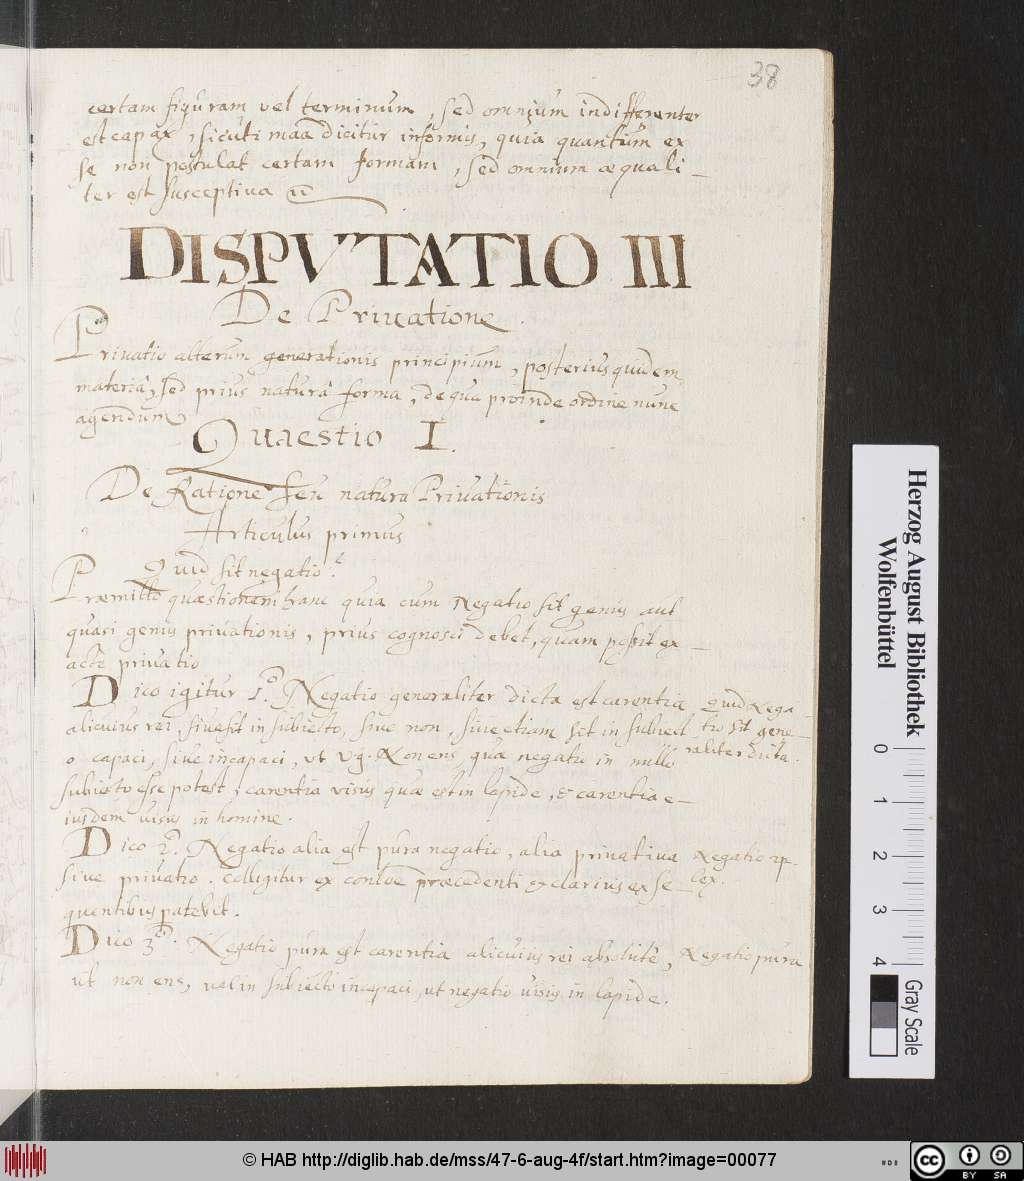 38
certam figuram vel terminum, sed omnium indifferenter
est capax, sicuti maa dicitur informis, quia quantum ex
se non postulat certam formam, sed omnium æquali-
ter est susceptiva
DISPVTATIO III
De Priuatione.
Priuatio alterum generationis principium, posterius quidem
materia, sed prius natura forma, de qua proinde ordine nunc
agendum
Quaestio I.
De Ratione seu natura Priuationis
Articulus primus
Quid sit negatio?
Præmitto quæstionem hanc quia cum Negatio sit genus aut
quasi genus priuationis, prius cognosci debet, quam possit ex-
acte priuatio
Dico igitur 1.o Negatio generaliter dicta est carentia
alicuius rei, siue sit in subiecto, siue non, siue etiam sit in subiect
o capaci, siue incapaci, ut vg. Non ens, quæ negatio in nullo
subiecto esse potest, carentia visus quæ est in lapide, & carentia e-
iusdem uisus in homine.
Quid Nega-
tio sit gene-
raliter dicta.
Dico 2.o Negatio alia est pura negatio, alia priuatiua
siue priuatio. Colligitur ex præcedenti ex clarius ex se-
quentibus patebit.
Negatio
Dico 3.o Negatio pura est carentia alicuius rei absolute,
ut non ens, uel in subiecto incapaci, ut negatio uisus in lapide.
Negatio pura
Herzog August Bibliothek
Wolfenbüttel
0 1 2 3 4
Gray Scale
© HAB http://diglib.hab.de/mss/47-6-aug-4f/start.htm?image=00077
cc BY SA